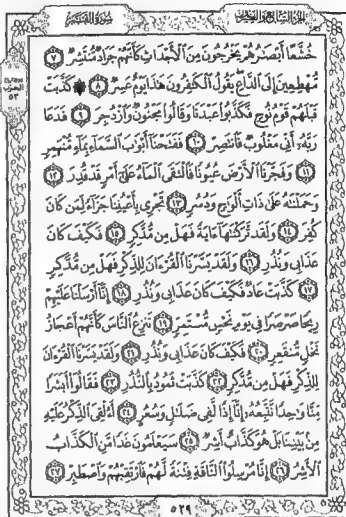 الجزء السابع والعشرون سورة القمر
خُشَّعًا أَبْصَٰرُهُمْ يَخْرُجُونَ مِنَ ٱلْأَجْدَاثِ كَأَنَّهُمْ جَرَادٌ مُّنتَشِرٌ ٧
مُّهْطِعِينَ إِلَى ٱلدَّاعِ يَقُولُ ٱلْكَٰفِرُونَ هَٰذَا يَوْمٌ عَسِرٌ ٨ كَذَّبَتْ
قَبْلَهُمْ قَوْمُ نُوحٍ فَكَذَّبُوا۟ عَبْدَنَا وَقَالُوا۟ مَجْنُونٌ وَٱزْدُجِرَ ٩ فَدَعَا
رَبَّهُۥٓ أَنِّى مَغْلُوبٌ فَٱنتَصِرْ ١٠ فَفَتَحْنَآ أَبْوَٰبَ ٱلسَّمَآءِ بِمَآءٍ مُّنْهَمِرٍ
١١ وَفَجَّرْنَا ٱلْأَرْضَ عُيُونًا فَٱلْتَقَى ٱلْمَآءُ عَلَىٰٓ أَمْرٍ قَدْ قُدِرَ ١٢
وَحَمَلْنَٰهُ عَلَىٰ ذَاتِ أَلْوَٰحٍ وَدُسُرٍ ١٣ تَجْرِى بِأَعْيُنِنَا جَزَآءً لِّمَن كَانَ
كُفِرَ ١٤ وَلَقَد تَّرَكْنَٰهَآ ءَايَةً فَهَلْ مِن مُّدَّكِرٍ ١٥ فَكَيْفَ كَانَ
عَذَابِى وَنُذُرِ ١٦ وَلَقَدْ يَسَّرْنَا ٱلْقُرْءَانَ لِلذِّكْرِ فَهَلْ مِن مُّدَّكِرٍ
١٧ كَذَّبَتْ عَادٌ فَكَيْفَ كَانَ عَذَابِى وَنُذُرِ ١٨ إِنَّآ أَرْسَلْنَا عَلَيْهِمْ
رِيحًا صَرْصَرًا فِى يَوْمِ نَحْسٍ مُّسْتَمِرٍّ ١٩ تَنزِعُ ٱلنَّاسَ كَأَنَّهُمْ أَعْجَازُ
نَخْلٍ مُّنقَعِرٍ ٢٠ فَكَيْفَ كَانَ عَذَابِى وَنُذُرِ ٢١ وَلَقَدْ يَسَّرْنَا ٱلْقُرْءَانَ
لِلذِّكْرِ فَهَلْ مِن مُّدَّكِرٍ ٢٢ كَذَّبَتْ ثَمُودُ بِٱلنُّذُرِ ٢٣ فَقَالُوٓا۟ أَبَشَرًا
مِّنَّا وَٰحِدًا نَّتَّبِعُهُۥٓ إِنَّآ إِذًا لَّفِى ضَلَٰلٍ وَسُعُرٍ ٢٤ أَءُلْقِىَ ٱلذِّكْرُ عَلَيْهِ
مِنۢ بَيْنِنَا بَلْ هُوَ كَذَّابٌ أَشِرٌ ٢٥ سَيَعْلَمُونَ غَدًا مَّنِ ٱلْكَذَّابُ
ٱلْأَشِرُ ٢٦ إِنَّا مُرْسِلُوا۟ ٱلنَّاقَةِ فِتْنَةً لَّهُمْ فَٱرْتَقِبْهُمْ وَٱصْطَبِرْ ٢٧
٥٢٩
الحزب
٥٣